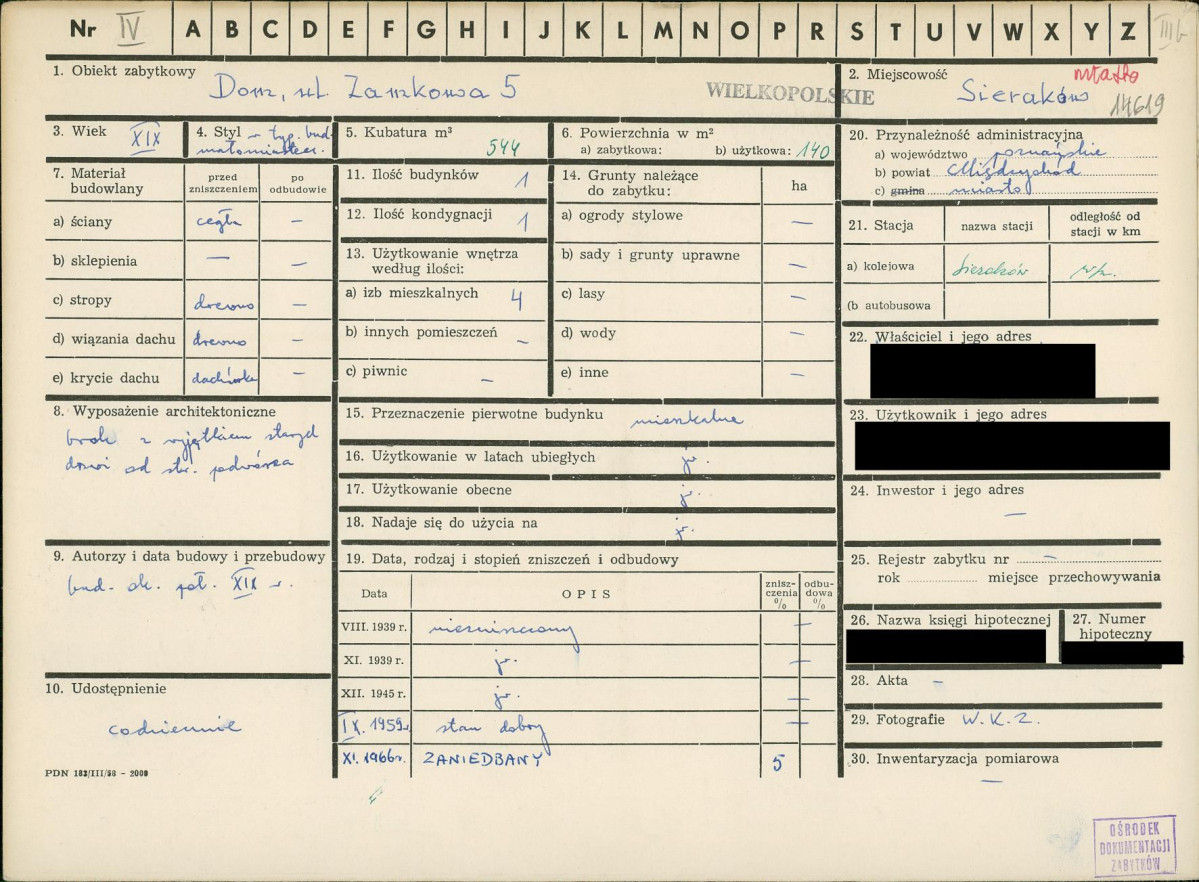 Nr IV A B C D E F G H I J K L M N O P R S T U V W X Y Z III b
1. Obiekt zabytkowy
Dom, ul. Zamkowa 5
WIELKOPOLSKIE
2. Miejscowość
miasto
Sieraków
14619
3. Wiek
XIX
4. Styl w typ. bud.
małomiastecz.
5. Kubatura m³
544
6. Powierzchnia w m²
a) zabytkowa: b) użytkowa: 140
7. Materiał budowlany
przed zniszczeniem
po odbudowie
a) ściany cegła —
b) sklepienia — —
c) stropy drewno —
d) wiązania dachu drewno —
e) krycie dachu dachówka —
8. Wyposażenie architektoniczne
brak z wyjątkiem starych
drzwi od str. podwórza
9. Autorzy i data budowy i przebudowy
bud. ok. poł. XIX w.
10. Udostępnienie
codziennie
PDN 182/III/58 - 2000
11. Ilość budynków 1
12. Ilość kondygnacji 1
13. Użytkowanie wnętrza
według ilości:
a) izb mieszkalnych 4
b) innych pomieszczeń —
c) piwnic —
14. Grunty należące
do zabytku:
ha
a) ogrody stylowe —
b) sady i grunty uprawne —
c) lasy —
d) wody —
e) inne —
15. Przeznaczenie pierwotne budynku mieszkalne
16. Użytkowanie w latach ubiegłych jw.
17. Użytkowanie obecne j.
18. Nadaje się do użycia na j.
19. Data, rodzaj i stopień zniszczeń i odbudowy
Data
OPIS
znisz-
czenia
%
odbu-
dowa
%
VIII. 1939 r. niezniszczony —
XI. 1939 r. jw. —
XII. 1945 r. jw. —
IX. 1959r. stan dobry —
XI. 1966r. ZANIEDBANY 5
20. Przynależność administracyjna
a) województwo poznańskie
b) powiat Międzychód
c) gmina miasto
21. Stacja
nazwa stacji
odległość od
stacji w km
a) kolejowa Sieraków
(b autobusowa
22. Właściciel i jego adres
23. Użytkownik i jego adres
24. Inwestor i jego adres
—
25. Rejestr zabytku nr —
rok miejsce przechowywania
26. Nazwa księgi hipotecznej
27. Numer
hipoteczny
28. Akta —
29. Fotografie W.K.Z.
30. Inwentaryzacja pomiarowa
—
OŚRODEK
DOKUMENTACJI
ZABYTKÓW